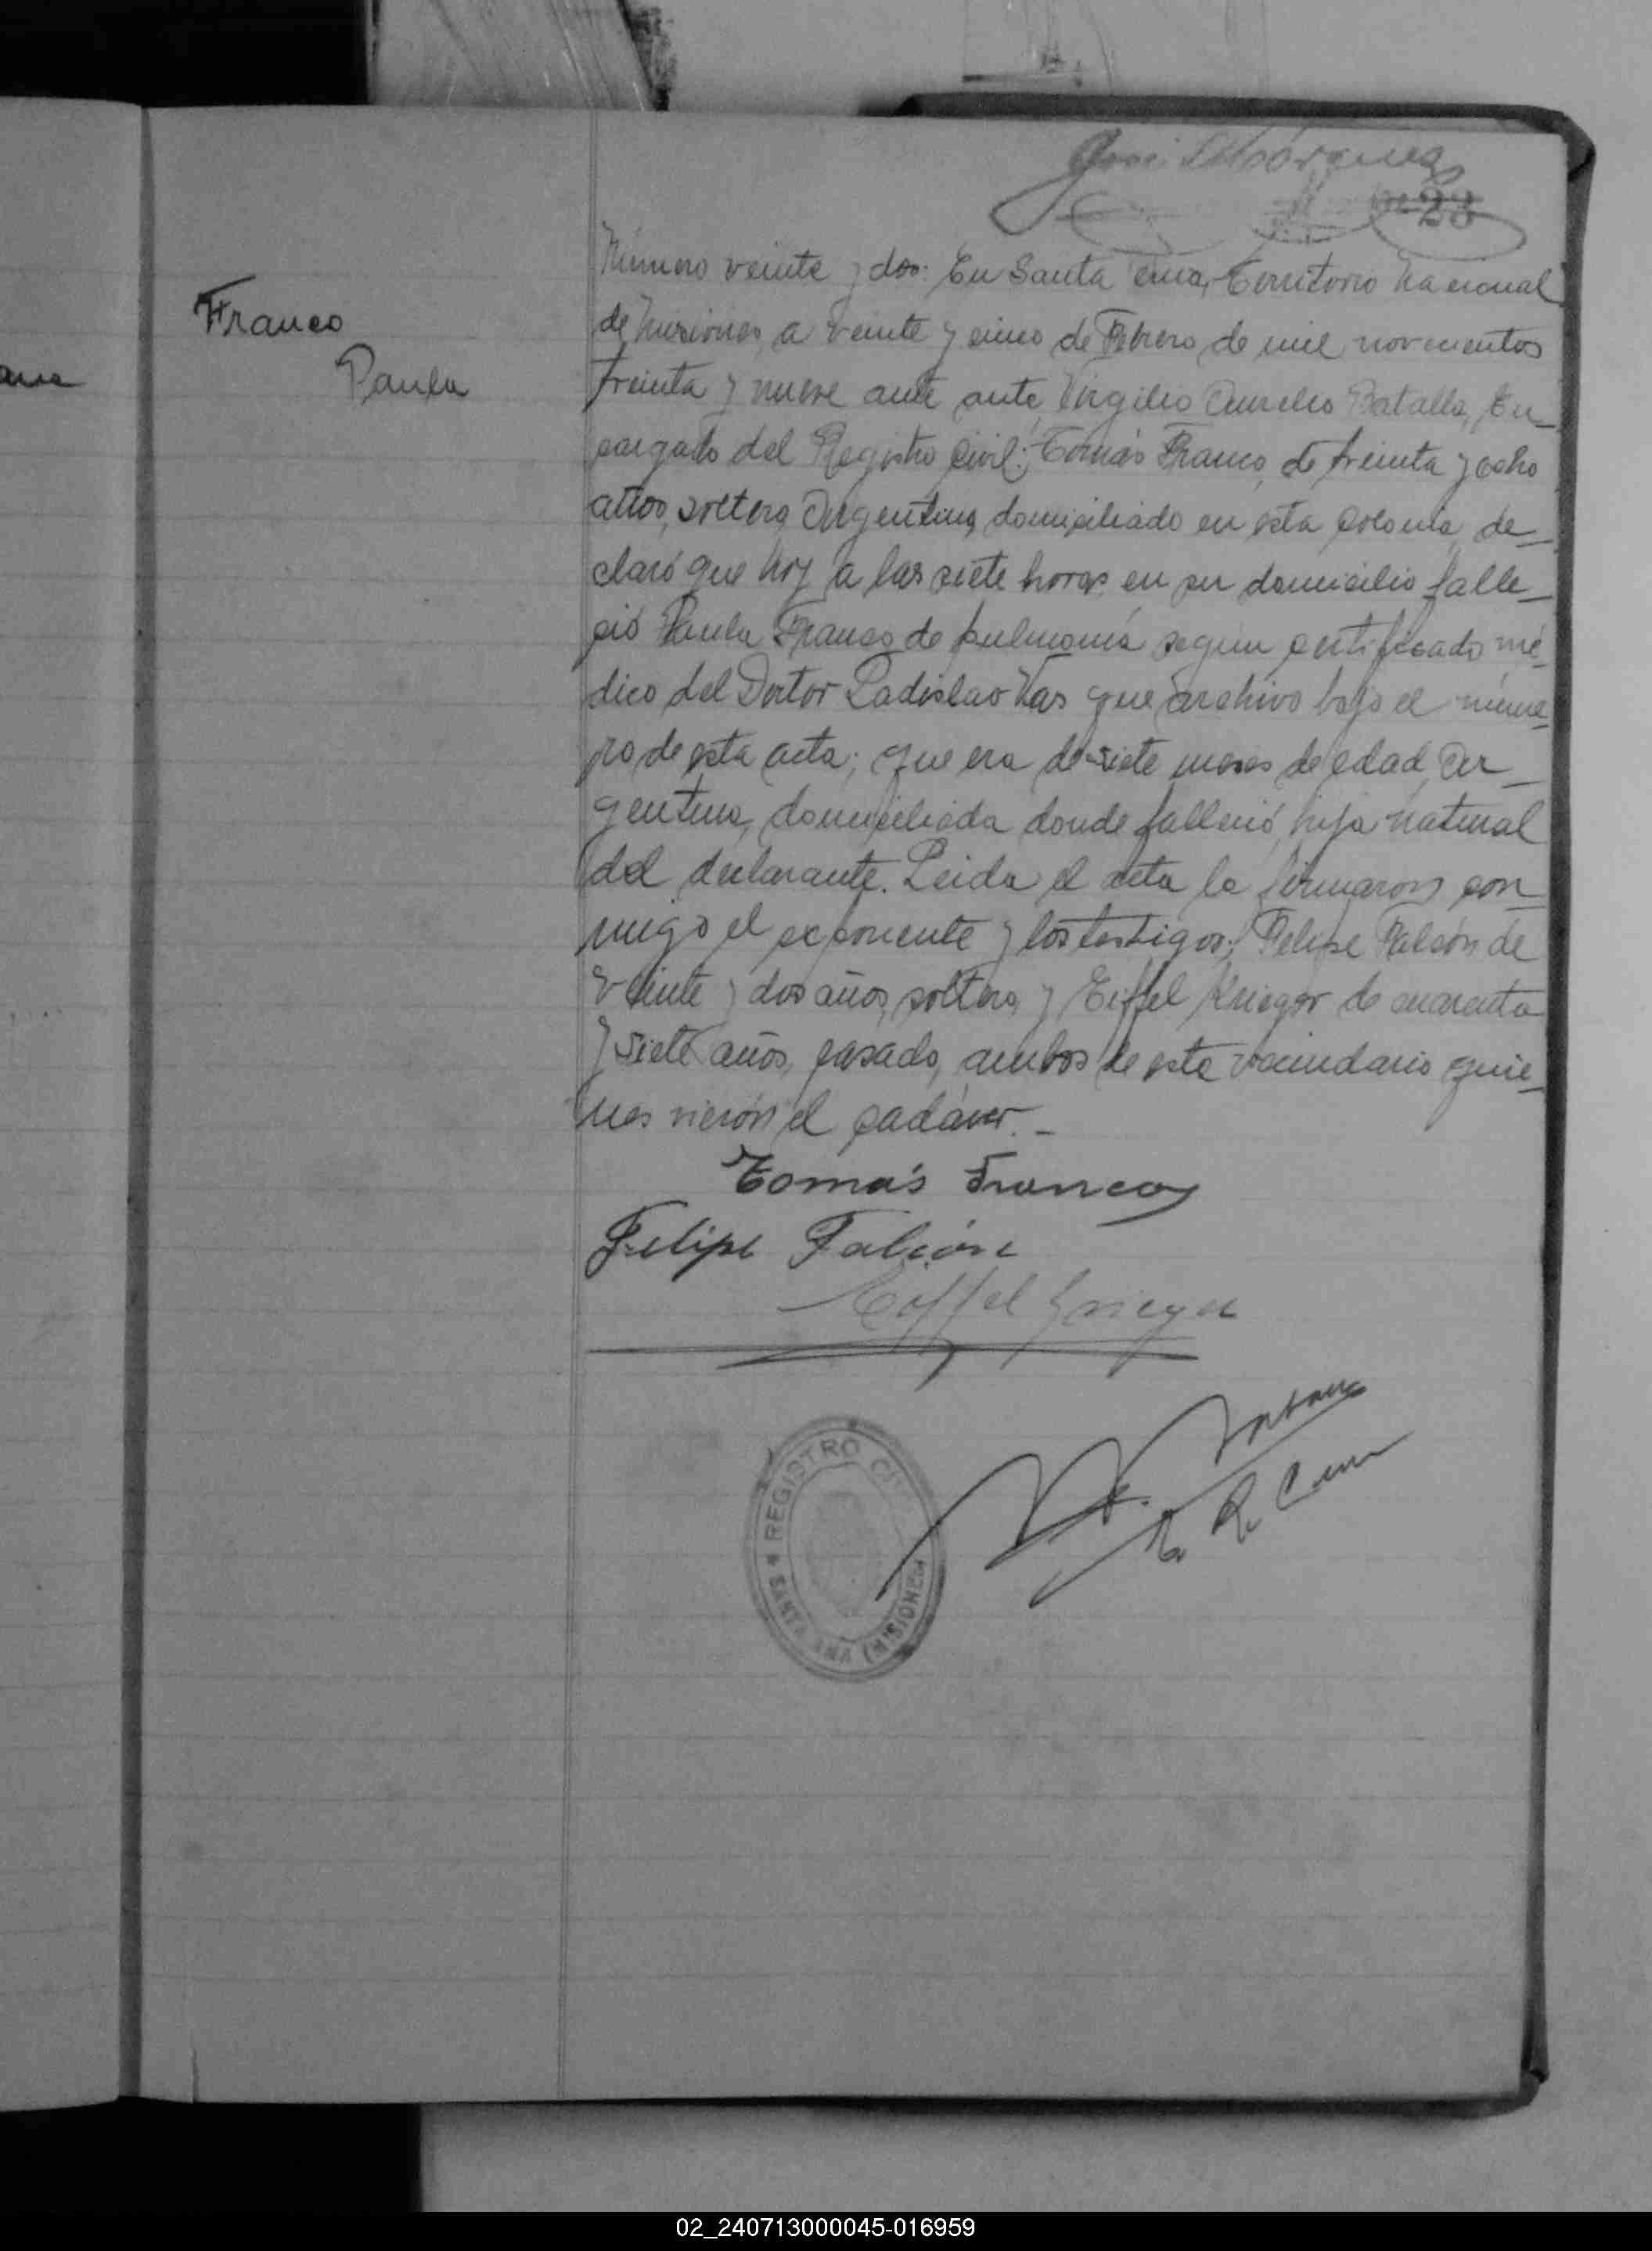 José
Nº 23
Franco
Paula
Número veinte y dos: En Santa Ana, Territorio Nacional
de Misiones, a veinte y cinco de Febrero de mil novecientos
treinta y nueve ante ante, Virgilio Aurelio Batalla, En_
cargado del Registro Civil; Tomás Franco, de treinta y ocho
años, soltero, Argentino, domiciliado en esta colonia, de_
claró que hoy a las siete horas en su domicilio falle_
ció Paula Franco de pulmonía según certificado mé_
dico del Doctor Ladislao Vas que archivo bajo el núme_
ro de esta acta; que era de siete meses de edad, Ar_
gentina, domiciliada donde falleció, hija natural
del declarante. Leida el acta la firmaron con_
migo el exponente y los testigos; Felipe Falcón de
veinte y dos años, soltero, y Eiffel Krieger de cuarenta
y siete años, casado, ambos de este vecindario quie_
nes vierón el cadáver._
Tomás Franco
Felipe Falcón
Eiffel Krieger
REGISTRO CIVIL
* SANTA ANA (MISIONES)
02_240713000045-016959